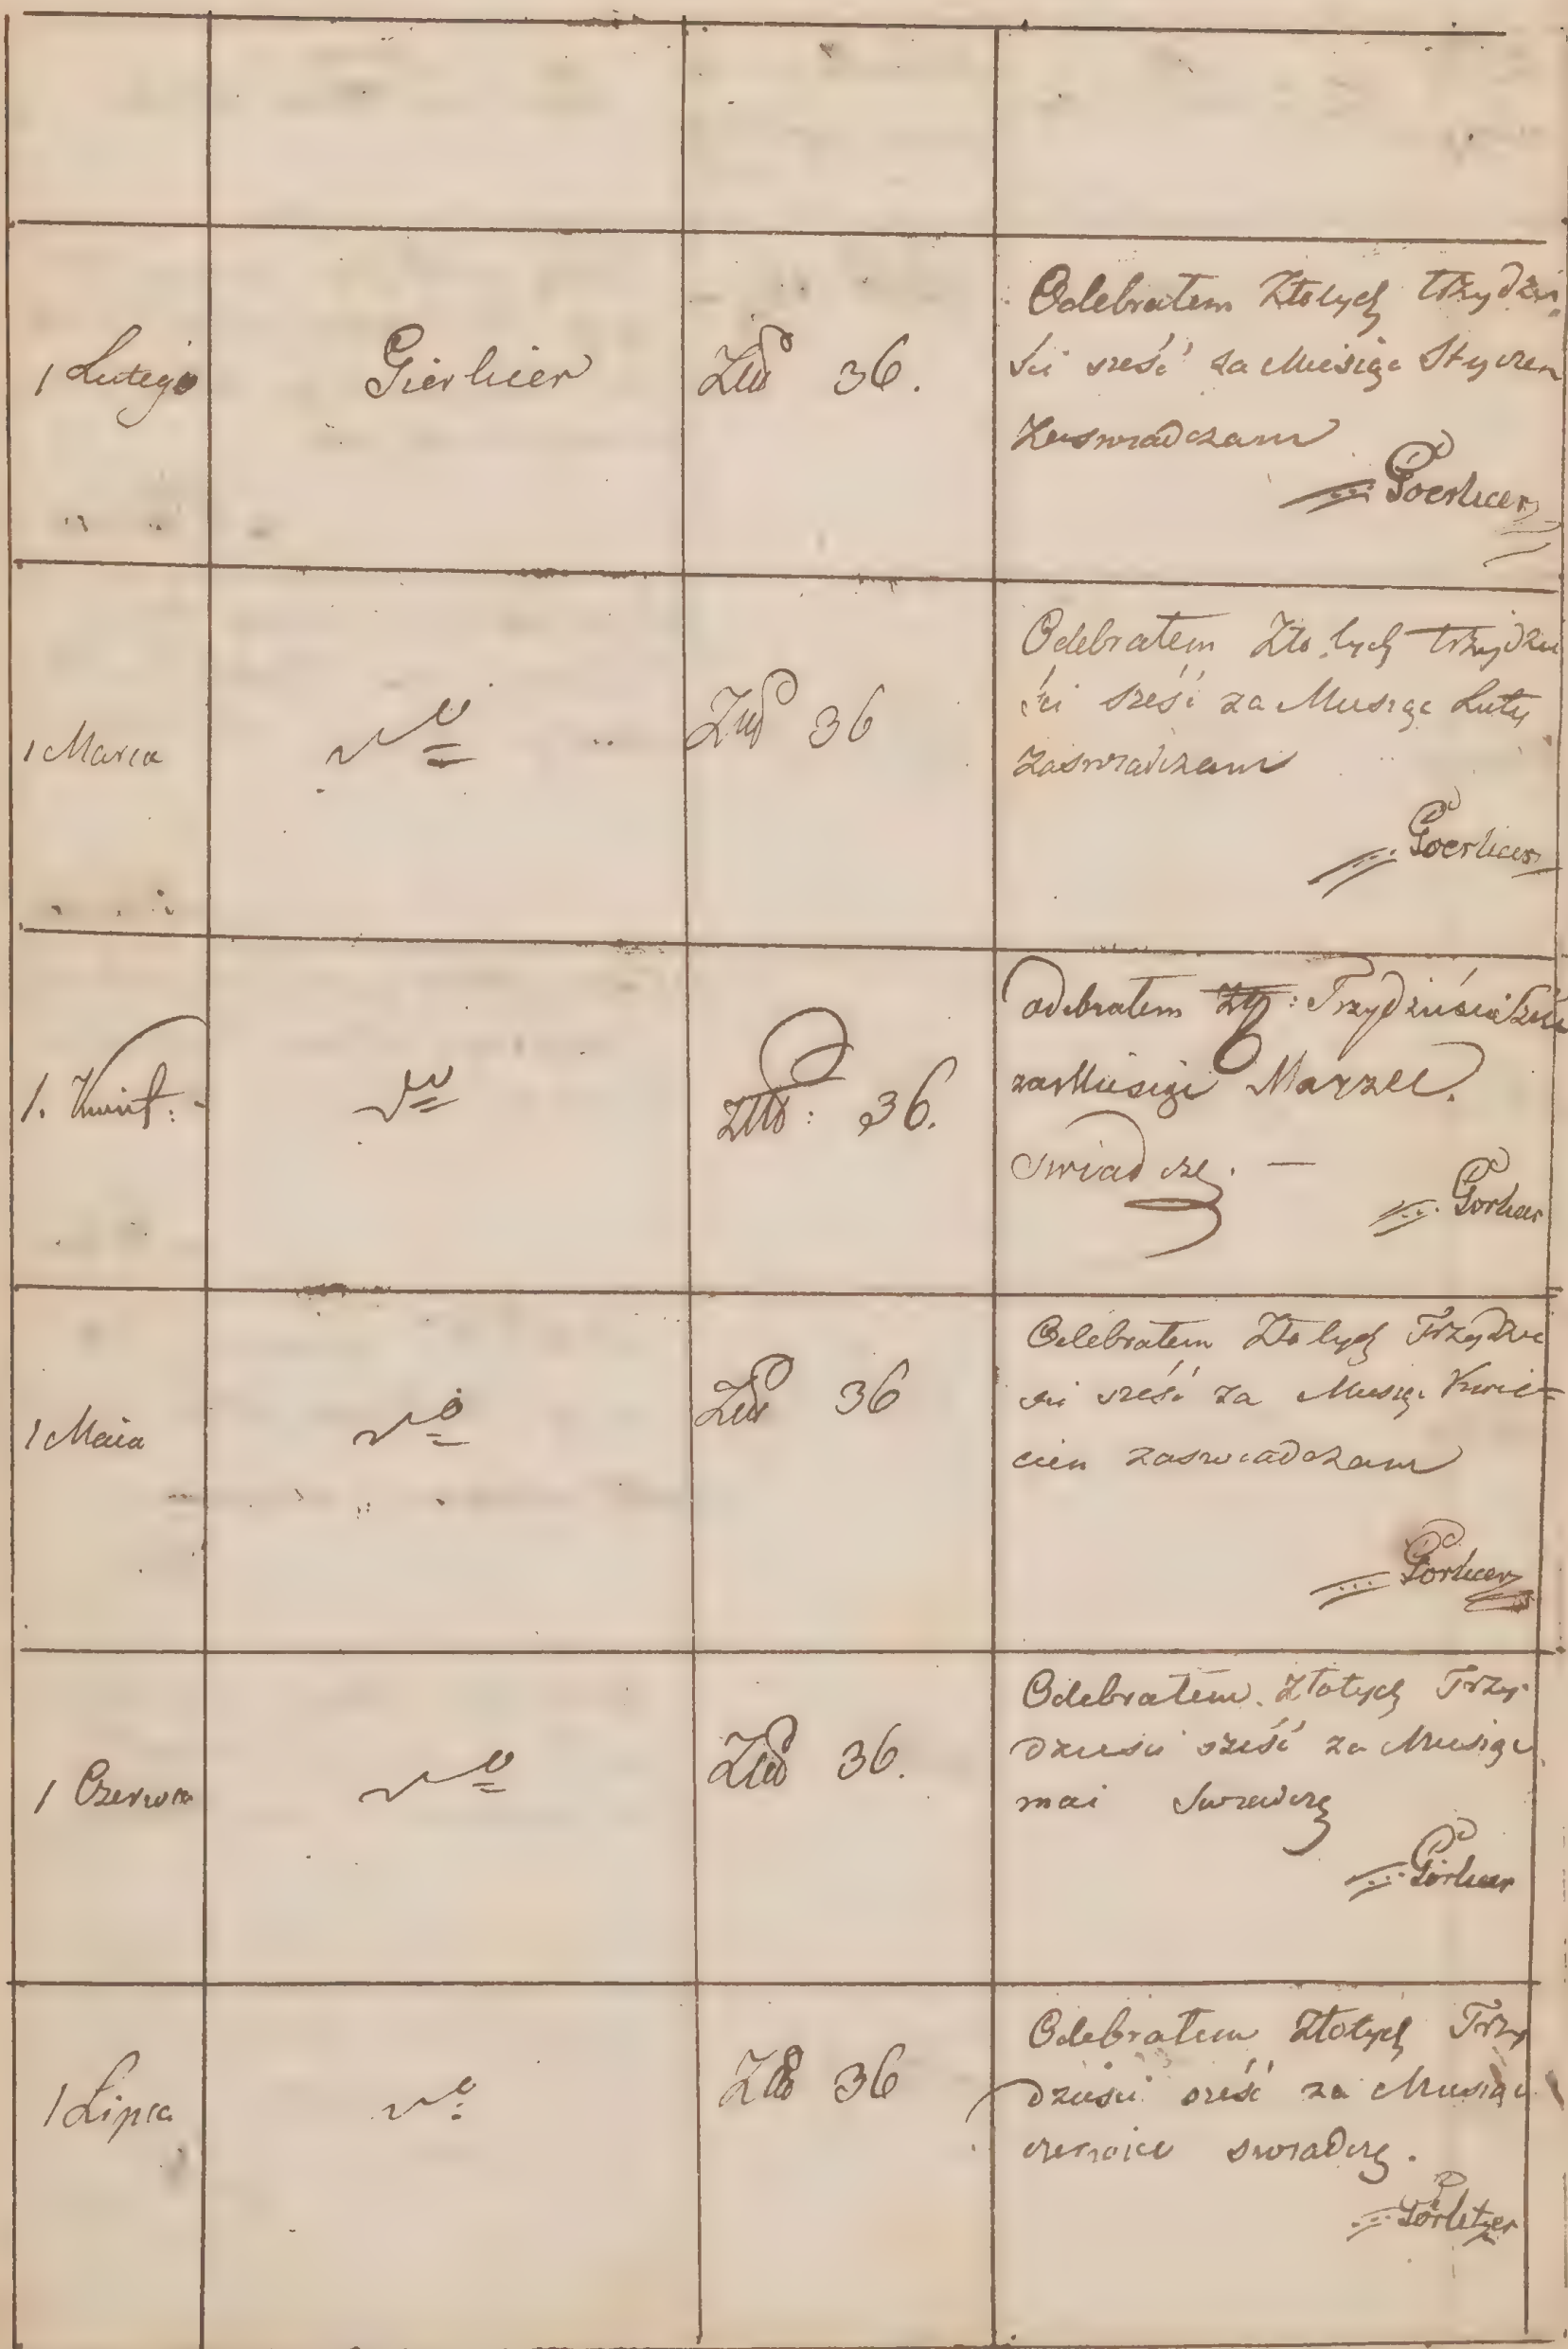 1 Lutego Gierlicer Złp 36.
Odebrałem Złotych trzydzie
ści sześć za Miesiąc Styczen
Zaswiadczam
Goerlicer
1 Marca Złp 36
Odebrałem Złotych trzydzie
ści sześć za Miesiąc Luty
Zaswiadczam
Goerlicer
1. Kwiet: Złp: 36.
Odebrałem Złp: Trzydzieście Sześć
za Miesiąc Marzec.
Swiadczę. —
Gorlicer
1 Maia Złp 36
Odebrałem Złotych Trzydzie
ści sześć za Miesiąc Kwie=
cien zaswiadczam
Gorlicer
1 Czerwca Złp 36.
Odebrałem Złotych Trzy
dziesci sześć za Miesiąc
mai Swiadczę
Görlicer
1 Lipca Złp 36
Odebrałem Złotych Trzy
dziesci sześć za Miesiąc
czerwiec swiadczę.
Görlitzer